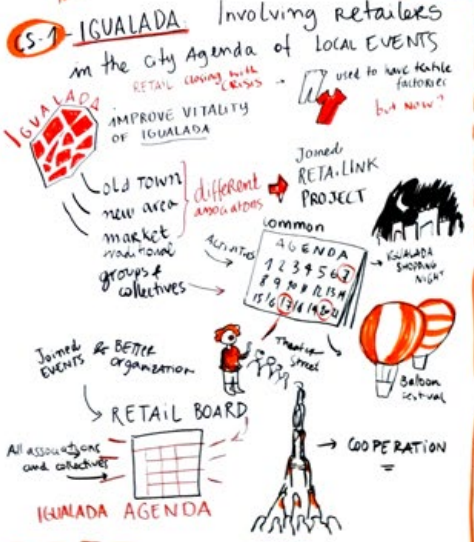 CS-1 - IGUALADA: Involving retailers
in the city Agenda of LOCAL EVENTS
RETAIL closing with CRISIS →
used to have textile
factories
but now?
IGUALADA
IMPROVE VITALITY
OF IGUALADA
OLD TOWN
new area
market
traditional
groups &
collectives
different
associations
Joined
RETAILINK
PROJECT
ACTIVITIES
common
AGENDA
1 2 3 4 5 6 7
8 9 10 11 12 13 14
15 16 17 18 19 20 21
IGUALADA
SHOPPING
NIGHT
Theatre
Street
Balloon
Festival
Joined & BETTER
EVENTS ORGANIZATION
RETAIL BOARD
All associations
and collectives
IGUALADA AGENDA
→ COOPERATION